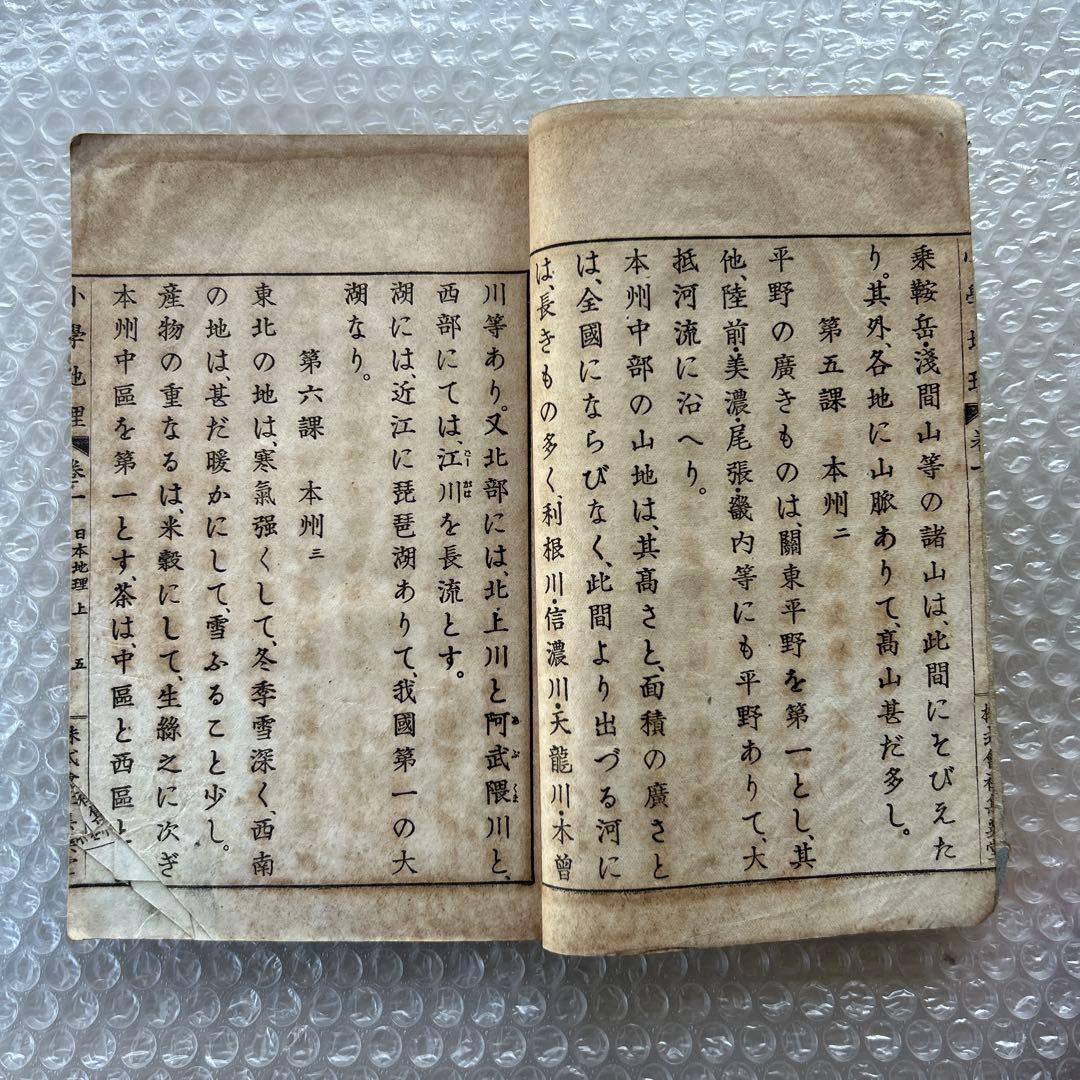 乗鞍岳・淺間山等の諸山は、此間にそびえた
り。其外、各地に山脈ありて、髙山甚だ多し。
第五課 本州 二
平野の廣きものは、關東平野を第一とし、其
他、陸前・美濃・尾張・畿内等にも平野ありて、大
抵河流に沿へり。
本州中部の山地は、其髙さと、面積の廣さと
は、全國にならびなく、此間より出づる河に
は、長きもの多く、利根川・信濃川・天龍川・木曾
川等あり。又北部には、北上川と阿武隈川と、
西部にては、江川を長流とす。
湖には、近江に琵琶湖ありて、我國第一の大
湖なり。
第六課 本州 三
東北の地は、寒氣强くして、冬季雪深く、西南
の地は、甚だ暖かにして、雪ふること少し。
産物の重なるは、米穀にして、生絲之に次ぎ
本州中區を第一とす、茶は、中區と西區と
小學地理 卷一 日本地理 上 五